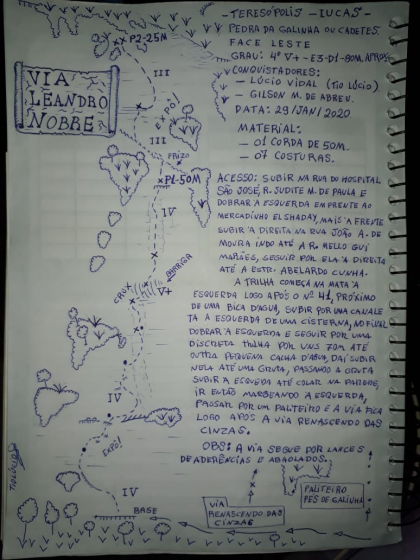 - TERESÓPOLIS - IUCAS -
PEDRA DA GALINHA OU CADETES.
FACE LESTE
GRAU: 4º V+ - E3 - D1 - 80M. APROX.
CONQUISTADORES:
- LÚCIO VIDAL (TIO LÚCIO)
- GILSON M. DE ABREU.
DATA: 29/JAN/2020
MATERIAL:
- 01 CORDA DE 50M.
- 07 COSTURAS.
ACESSO: SUBIR NA RUA DO HOSPITAL
SÃO JOSÉ, R. JUDITE M. DE PAULA E
DOBRAR À ESQUERDA EM FRENTE AO
MERCADINHO ELSHADAY, MAIS À FRENTE
SUBIR À DIREITA NA RUA JOÃO A. DE
MOURA INDO ATÉ A R. MELLO GUI
MARÃES, SEGUIR POR ELA À DIREITA
ATÉ A ESTR. ABELARDO CUNHA.
A TRILHA COMEÇA NA MATA À
ESQUERDA LOGO APÓS O Nº 41, PRÓXIMO
DE UMA BICA D'ÁGUA, SUBIR POR UMA CANALE
TA À ESQUERDA DE UMA CISTERNA, NO FINAL
DOBRAR À ESQUERDA E SEGUIR POR UMA
DISCRETA TRILHA POR UNS 70M ATÉ
OUTRA PEQUENA CAIXA D'ÁGUA, DAÍ SUBIR
NELA ATÉ UMA GRUTA, PASSANDO A GRUTA
SUBIR À ESQUERDA ATÉ COLAR NA PAREDE,
IR ENTÃO MARGEANDO À ESQUERDA,
PASSAR POR UM PALITEIRO E A VIA FICA
LOGO APÓS A VIA RENASCENDO DAS
CINZAS.
OBS: A VIA SEGUE POR LANCES
DE ADERÊNCIAS E ABAOLADOS.
VIA
LEANDRO
NOBRE
P2-25M
III
EXPO!
III
FRIZO
P1-50M
IV
BARRIGA
CRUX
V+
IV
EXPO!
IV
BASE
TIO LÚCIO
VIA
RENASCENDO DAS
CINZAS
PALITEIRO
PÉS DE GALINHA